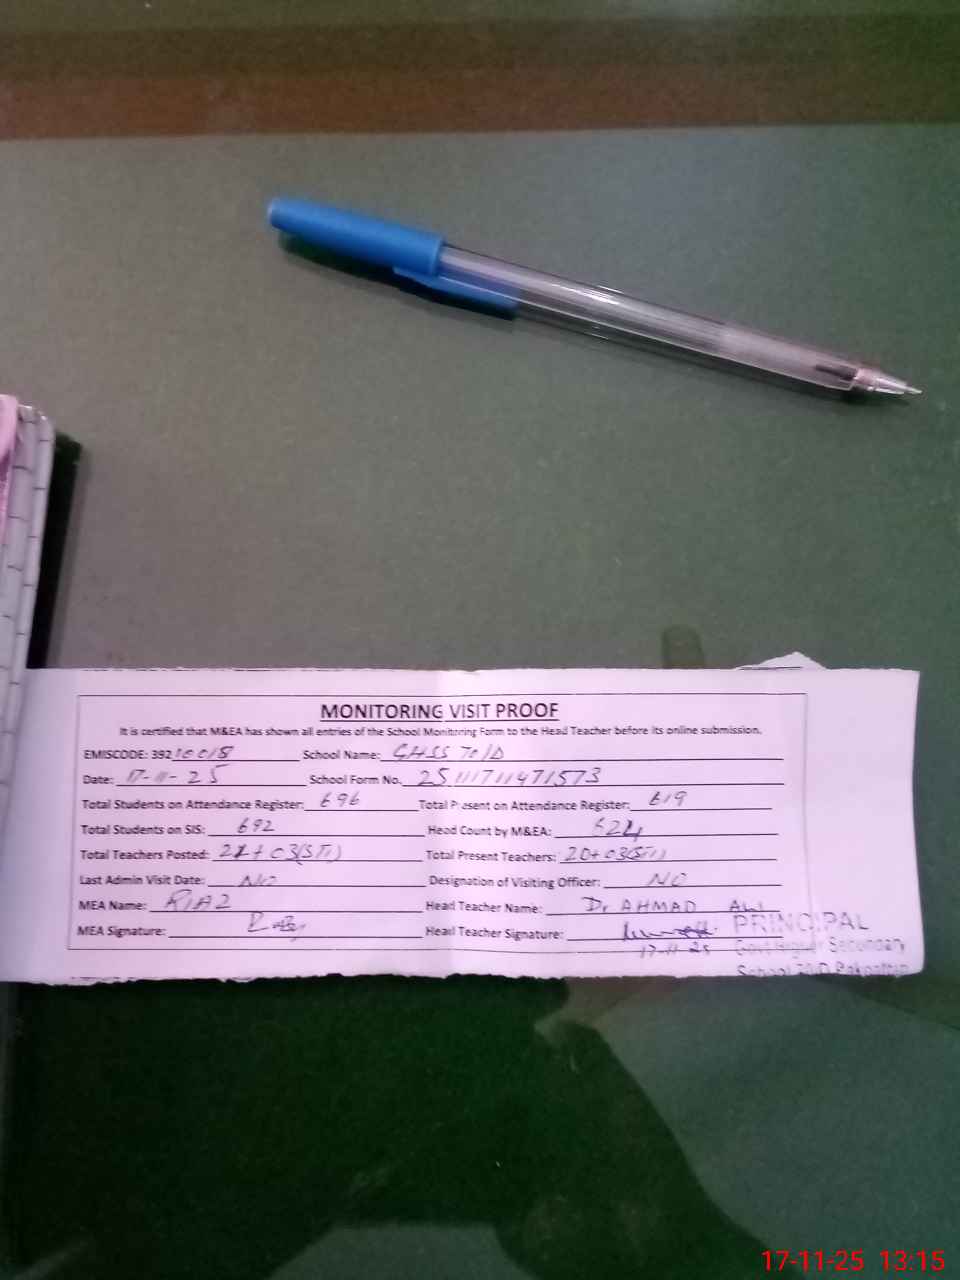 MONITORING VISIT PROOF
It is certified that M&EA has shown all entries of the School Monitoring Form to the Head Teacher before its online submission.
EMISCODE: 39210018 School Name: GHSS 70/D
Date: 17-11-25 School Form No. 25111711471573
Total Students on Attendance Register: 696 Total Present on Attendance Register: 619
Total Students on SIS: 692 Head Count by M&EA: 624
Total Teachers Posted: 21+03(STI) Total Present Teachers: 20+03(STI)
Last Admin Visit Date: NO Designation of Visiting Officer: NO
MEA Name: RIAZ Head Teacher Name: Dr AHMAD Ali
MEA Signature: Head Teacher Signature:
17-11-25
PRINCIPAL
Govt. Higher Secondary
School 70/D Pakpattan
17-11-25 13:15